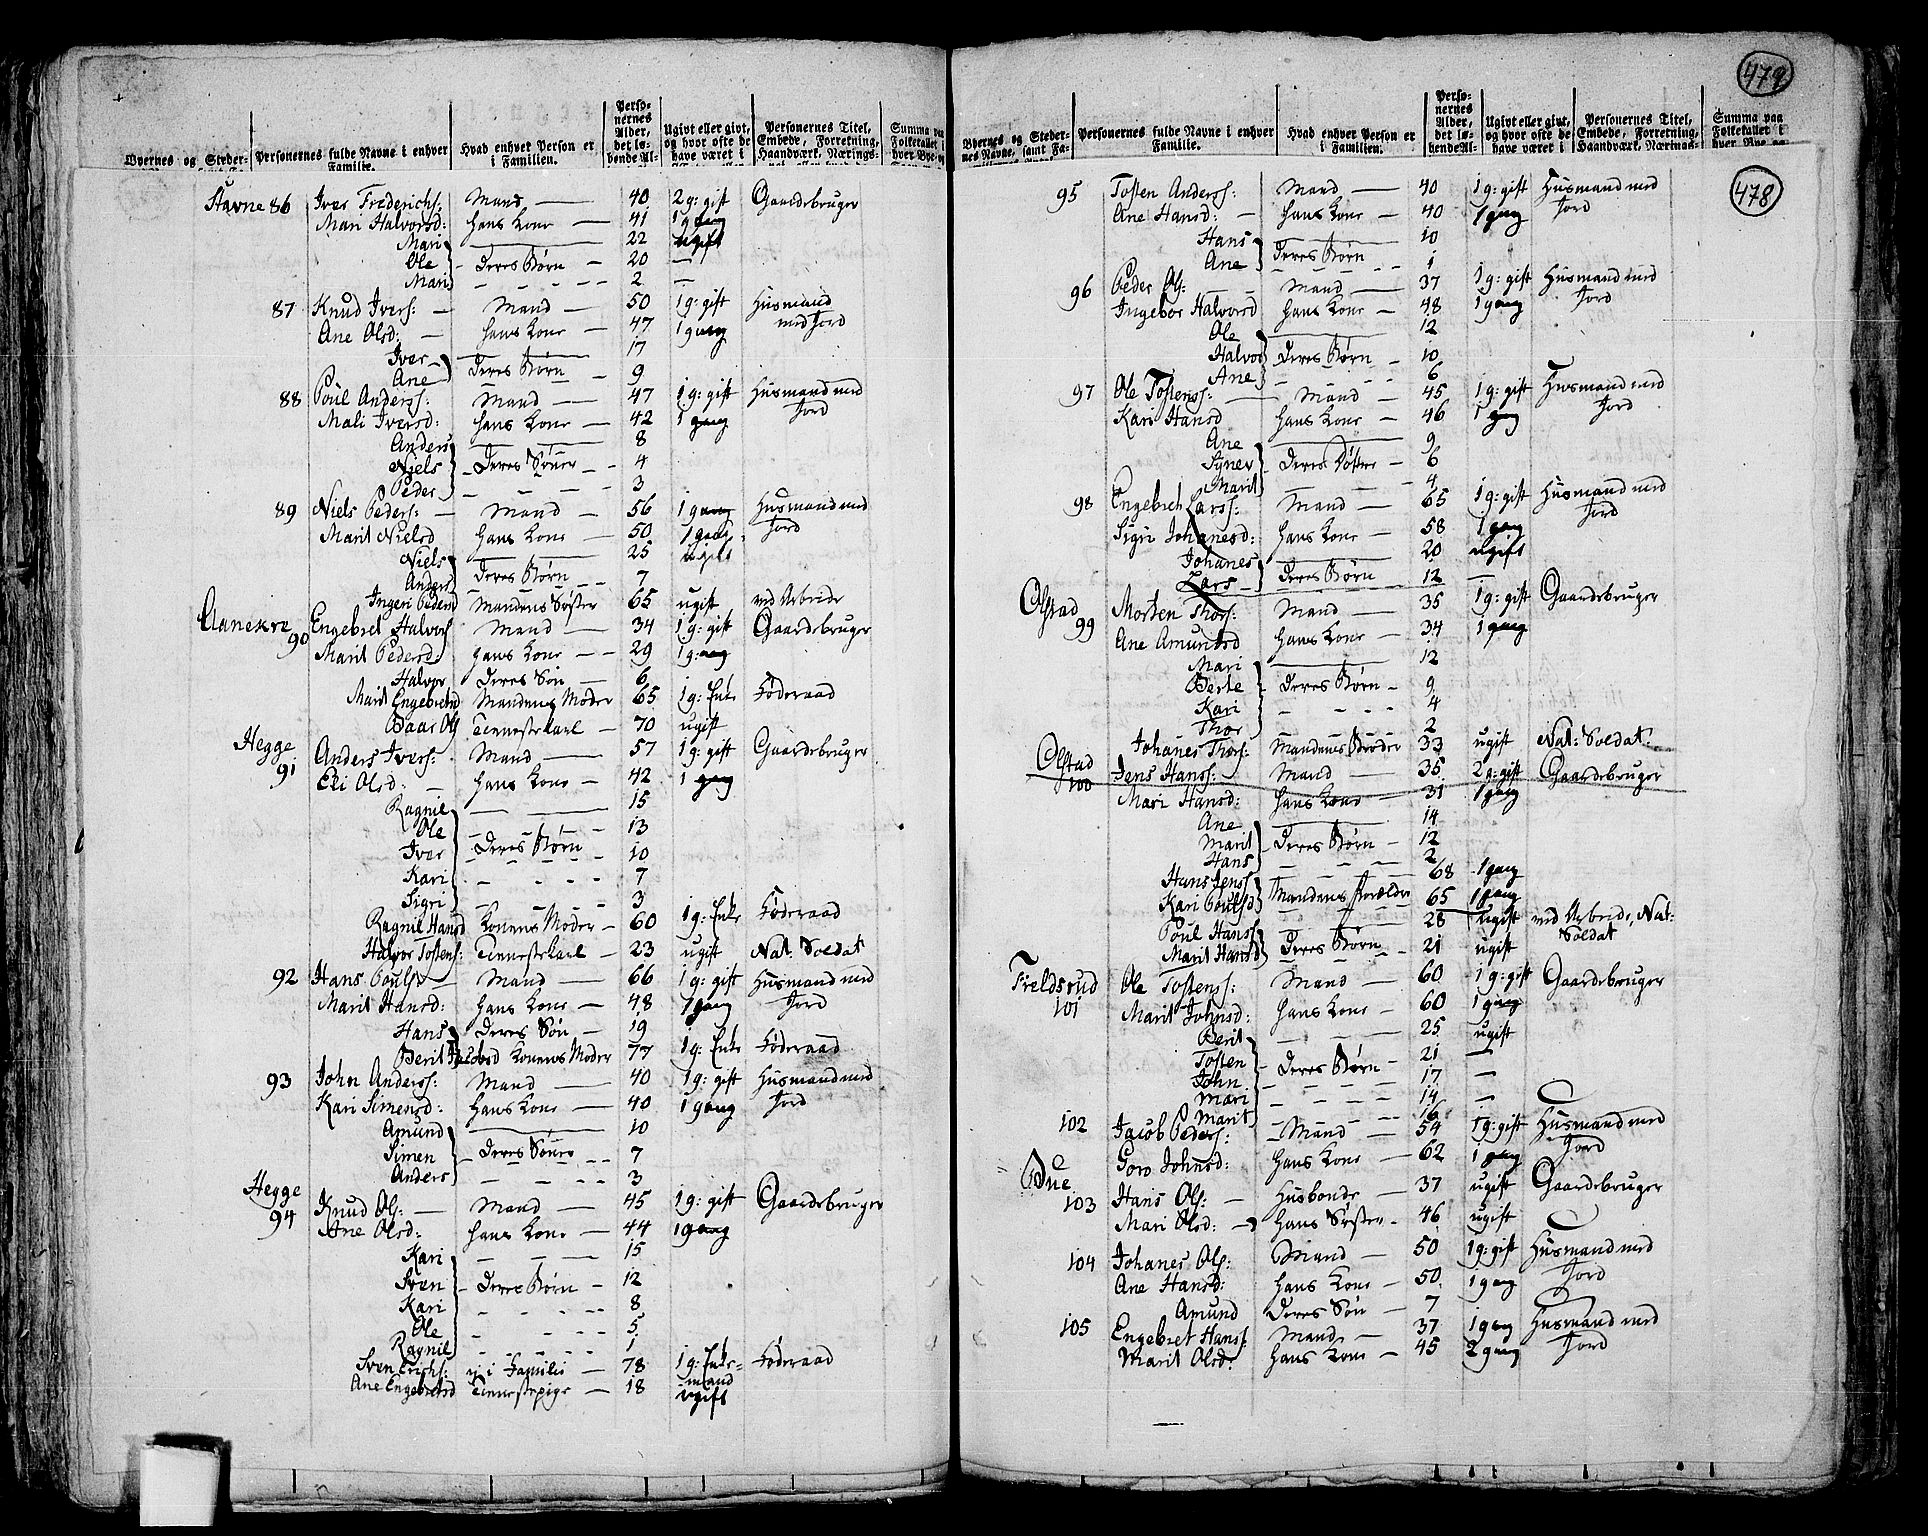 479
478
Byernes og Steder-
Personernes fulde Navne i enhver Familie.
Hvad enhver Person er i Familien.
Perso-
nernes
Alder,
det lø-
bende Al-
Ugivt eller givt,
og hvor ofte de
have været i
Personernes Titel,
Embede, Forretning,
Haandværk, Nærings-
Summa paa
Folketallet i
hver Bye og
Byernes og Steder-
nes Navne, samt Fa-
Personernes fulde Navne i enhver
Familie.
Hvad enhver Person er
i Familien.
Perso-
nernes
Alder,
det lø-
bende Al-
Ugivt eller givt,
og hvor ofte de
have været i
Personernes Titel,
Embede, Forretning,
Haandværk, Nærings-
Summa paa
Folketallet i
hver Bye og
Stavne 86 Iver Frederichs: Mand 40 2 g: gift Gaardebruger
Mari Halvorsd: hans Kone 41 1 gang
Mari 22 ugift
Ole Deres Børn 20 —
Mari 2 —
87 Knud Ivers: Mand 50 1 g: gift Husmand
Ane Olsd: hans Kone 47 1 gang med Jord
Iver 17
Ane Deres Børn 9
88 Poul Anderss: Mand 47 1 g: gift Husmand med
Mali Iversd: hans Kone 42 1 gang Jord
Anders 8
Niels Deres Sønner 4
Peder 3
89 Niels Peders: Mand 56 1 gang Husmand med
Marit Nielsd hans Kone 50 1 gang Jord
Niels 25 ugift
Anders Deres Børn 7
Ingeri Pedersd Mandens Søster 65 ugift ved Arbeide
Aanekre
90 Engebret Halvors Mand 34 1 g: gift Gaardebruger
Marit Pedersd: hans Kone 29 1 gang
Halvor Deres Søn 6
Marit Engebretsd Mandens Moder 65 1 g: Enke Føderaad
Baar Ols Tienestekarl 70 ugift
Hegge
91 Anders Ivers: Mand 57 1 g: gift Gaardebruger
Eli Olsd: hans Kone 42 1 gang
Ragnil 15
Ole 13
Iver Deres Børn 10
Kari 7
Sigri 3
Ragnil Hansd Konens Moder 60 1 g: Enke Føderaad
Halvor Tostens: Tienestekarl 23 ugift Nat. Soldat
92 Hans Pouls Mand 66 1 g: gift Husmand med
Marit Hansd: hans Kone 48 1 gang Jord
Hans Deres Søn 19
Berit Jacobsd Konens Moder 77 1 g: Enke Føderaad
93 John Anderss: Mand 40 1 g: gift Husmand med
Kari Simensd: hans Kone 40 1 gang Jord
Amund 10
Simen Deres Sønner 7
Anders 3
Hegge
94 Knud Ols: Mand 45 1 g: gift Gaardebruger
Ane Olsd: hans Kone 44 1 gang
Kari 15
Sven Deres Børn 12
Kari 8
Ole 5
Ragnil 1
Sven Erichs: ei i Familie 78 1 g: Enke- Føderaad
mand
Ane Engebretsd Tienestepige 18 ugift
95 Tosten Anderss: Mand 40 1 g: gift Husmand med
Ane Hansd: hans Kone 40 1 gang Jord
Hans 10
Ane Deres Børn 1
96 Peder Ols: Mand 37 1 g: gift Husmand med
Ingebor Halvorsd hans Kone 48 1 gang Jord
Ole 12
Halvor Deres Børn 10
Ane 6
97 Ole Tostens: Mand 45 1 g: gift Husmand med
Kari Hansd hans Kone 46 1 gang Jord
Ane 9
Synev Deres Døttre 6
Marit 4
98 Engebret Larss: Mand 65 1 g: gift Husmand med
Sigri Johanesd: hans Kone 58 1 gang Jord
Johanes 20 ugift
Lars Deres Børn 12 —
Olstad
99 Morten Thors: Mand 35 1 g: gift Gaardebruger
Ane Amundsd hans Kone 34 1 gang
Mari 12
Berte Deres Børn 9
Kari 4
Thor 2
Johanes Thors: Mandens Broder 33 ugift Nat: Soldat:
Olstad
100 Jens Hanss: Mand 35 2 g: gift Gaardebruger
Mari Hansd: hans Kone 31 1 gang
Ane 14
Marit Deres Børn 12
Hans 2
Hans Jenss 68 1 gang
Kari Poulsd Mandens Forældre 65 1 gang
Poul Hanss 28 ugift ved Arbeide, Nat:
Soldat
Marit Hansd Deres Børn 21 ugift
Freldsrud
101 Ole Tostens: Mand 60 1 g: gift Gaardebruger
Marit Johnsd: hans Kone 60 1 gang
Berit 25 ugift
Tosten Deres Børn 21 —
John 17 —
Mari 14 —
Marit 16
102 Jacob Peders: Mand 54 1 g: gift Husmand med
Goro Johnsd: hans Kone 62 1 gang Jord
Bue
103 Hans Ols: Husbonde 37 ugift Gaardebruger
Mari Olsd: hans Søster 46 ugift
104 Johanes Ols: Mand 50 1 g: gift Husmand med
Ane Hansd: hans Kone 50 1 gang Jord
Amund Deres Søn 7
105 Engebret Hanss: Mand 37 1 gang Husmand med
Marit Olsd: hans Kone 45 2 gang Jord